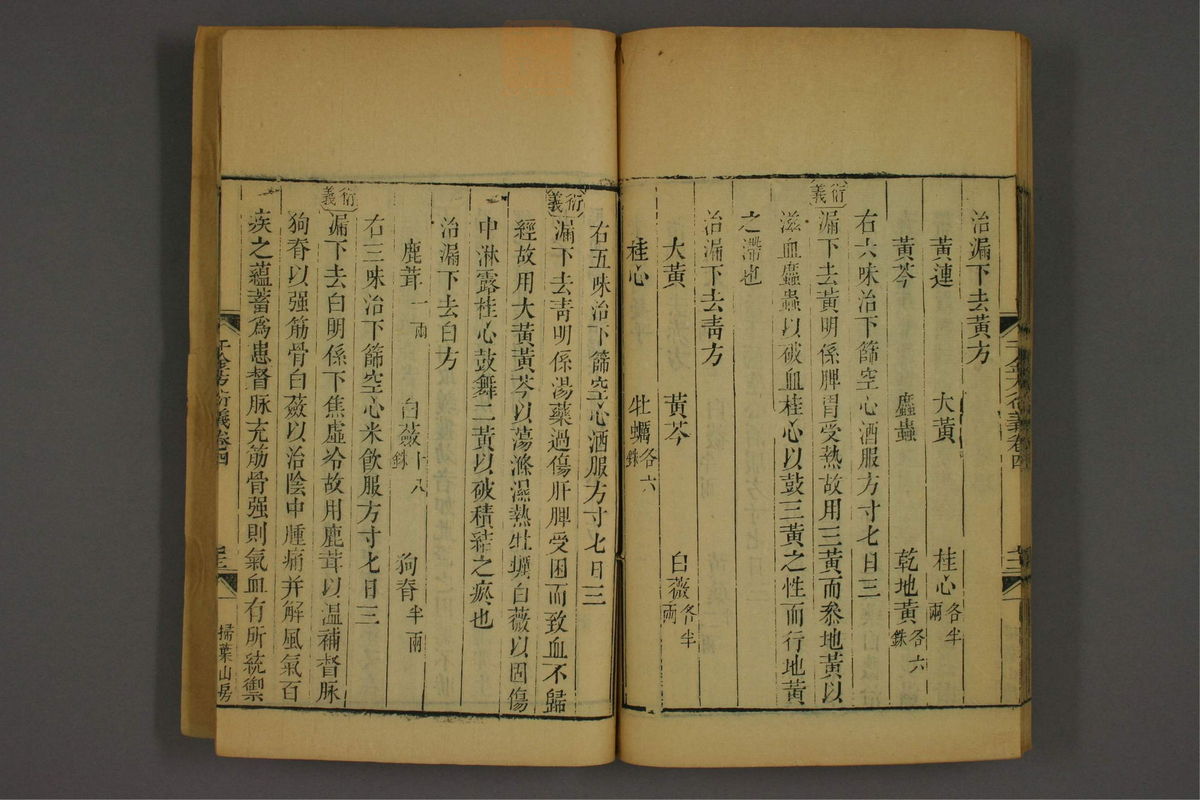 治漏下去黃方
黃連　大黃　桂心各半兩
黃芩　䗪蟲　乾地黃各六銖
右六味治下篩空心酒服方寸匕日三
衍義
漏下去黃明係脾胃受熱故用三黃而叅地黃以
滋血䗪蟲以破血桂心以鼓三黃之性而行地黃
之滯也
治漏下去靑方
大黃　黃芩　白薇各半兩
桂心　牡蠣各六銖
右五味治下篩空心酒服方寸匕日三
衍義
漏下去靑明係湯藥過傷肝脾受困而致血不歸
經故用大黃黃芩以蕩滌濕熱牡蠣白薇以固傷
中淋露桂心鼓舞二黃以破積結之瘀也
治漏下去白方
鹿茸一兩　白蘞十八銖　狗脊半兩
右三味治下篩空心米飮服方寸匕日三
衍義
漏下去白明係下焦虛冷故用鹿茸以溫補督脉
狗脊以强筋骨白蘞以治陰中腫痛并解風氣百
疾之蘊蓄爲患督脉充筋骨强則氣血有所統禦
千金方衍義卷四
掃葉山房